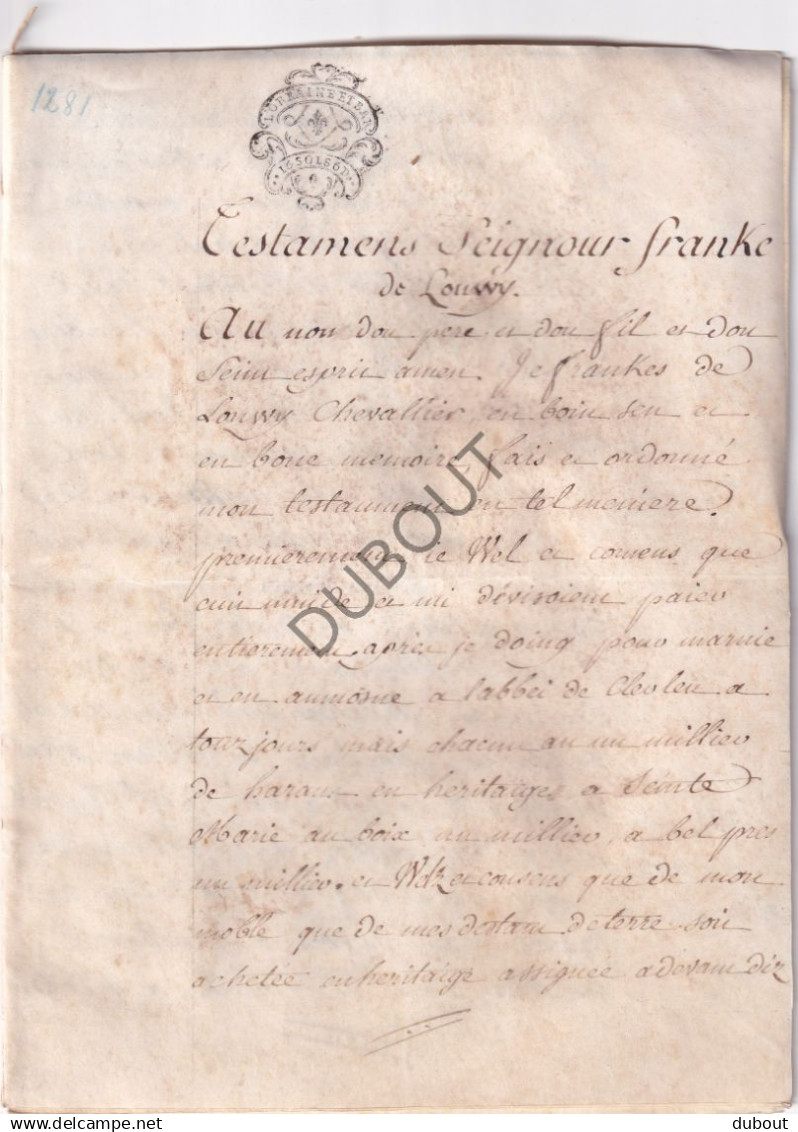 1281
LORRAINE ET BAR
Testamens Seignour franke
de Louvvy.
Au non dou pere et dou fil et dou
Seint esprit amen. Je frankes de
Louvvy Chevallier, en boin sen et
en bone memoire, fais et ordonné
mon testaument en tel meniere.
premierement ie Wel et comens que
tuit mi devisoient paiev
entierement, apres je doing pour
et en aumosne a labbei de Clevleu a
touz jours mais chacun an un milliev
de harans en heritaiges a Seinte
Marie au boix un milliev, a bel pres
un milliev. et Welz et consens que de mon
moble que de mes de terre soit
achetée en heritaige assignée a devant diz
DUBOUT
dubout